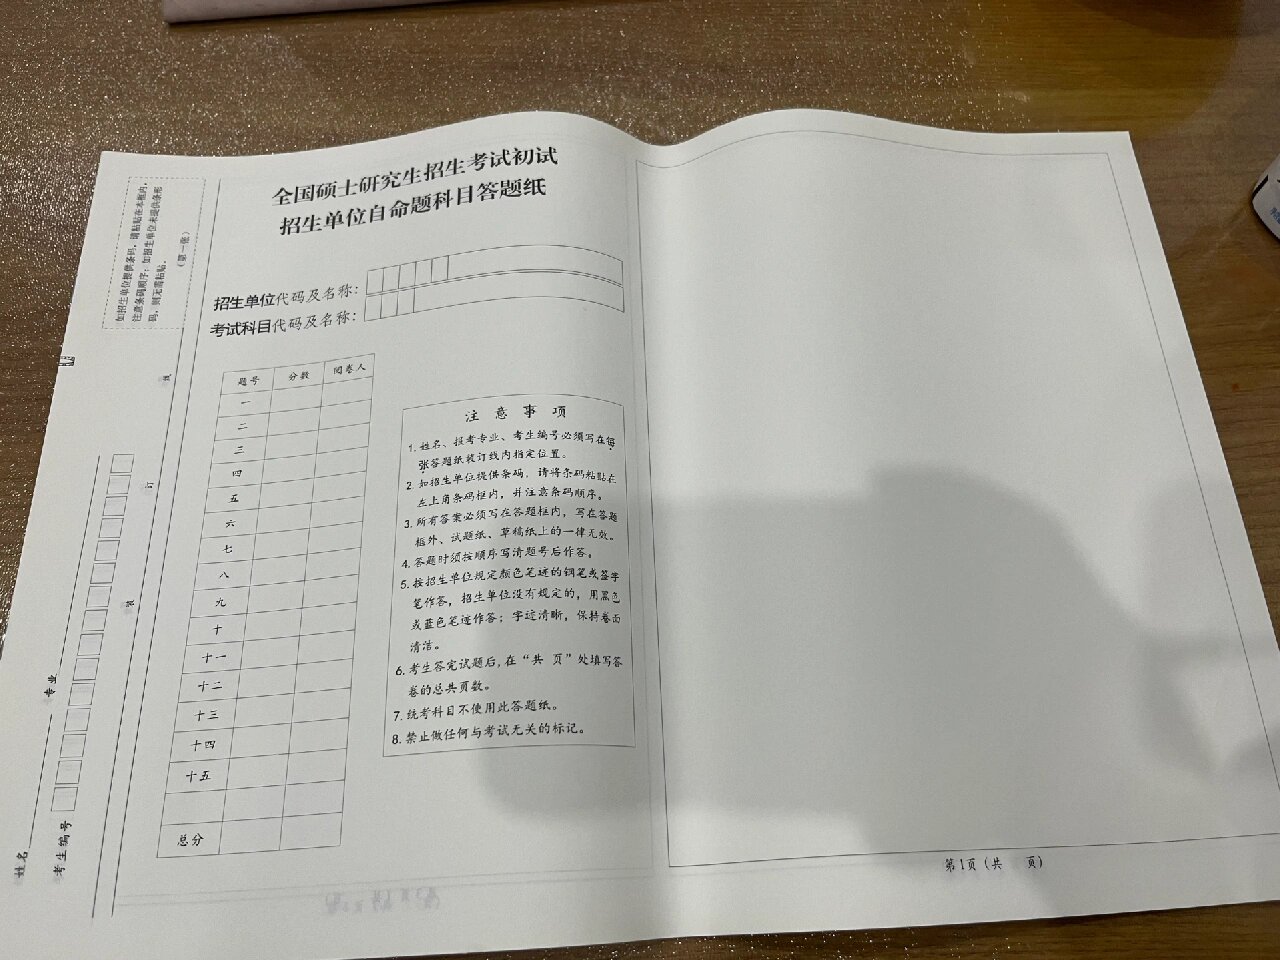 全国硕士研究生招生考试初试
招生单位自命题科目答题纸
如招生单位提供条码，请粘贴在本框内，
注意条码顺序；如招生单位未提供条形
码，则无需粘贴。
（第一张）
招生单位代码及名称：
考试科目代码及名称：
题号 分数 阅卷人
一
二
三
四
五
六
七
八
九
十
十一
十二
十三
十四
十五
总分
注意事项
1. 姓名、报考专业、考生编号必须写在每
张答题纸装订线内指定位置。
2. 如招生单位提供条码，请将条码粘贴在
左上角条码框内，并注意条码顺序。
3. 所有答案必须写在答题框内，写在答题
框外、试题纸、草稿纸上的一律无效。
4. 答题时须按顺序写清题号后作答。
5. 按招生单位规定颜色笔迹的钢笔或签字
笔作答，招生单位没有规定的，用黑色
或蓝色笔迹作答；字迹清晰，保持卷面
清洁。
6. 考生答完试题后，在“共 页”处填写答
卷的总共页数。
7. 统考科目不使用此答题纸。
8. 禁止做任何与考试无关的标记。
线
订
装
专业
姓名
考生编号
第1页（共 页）